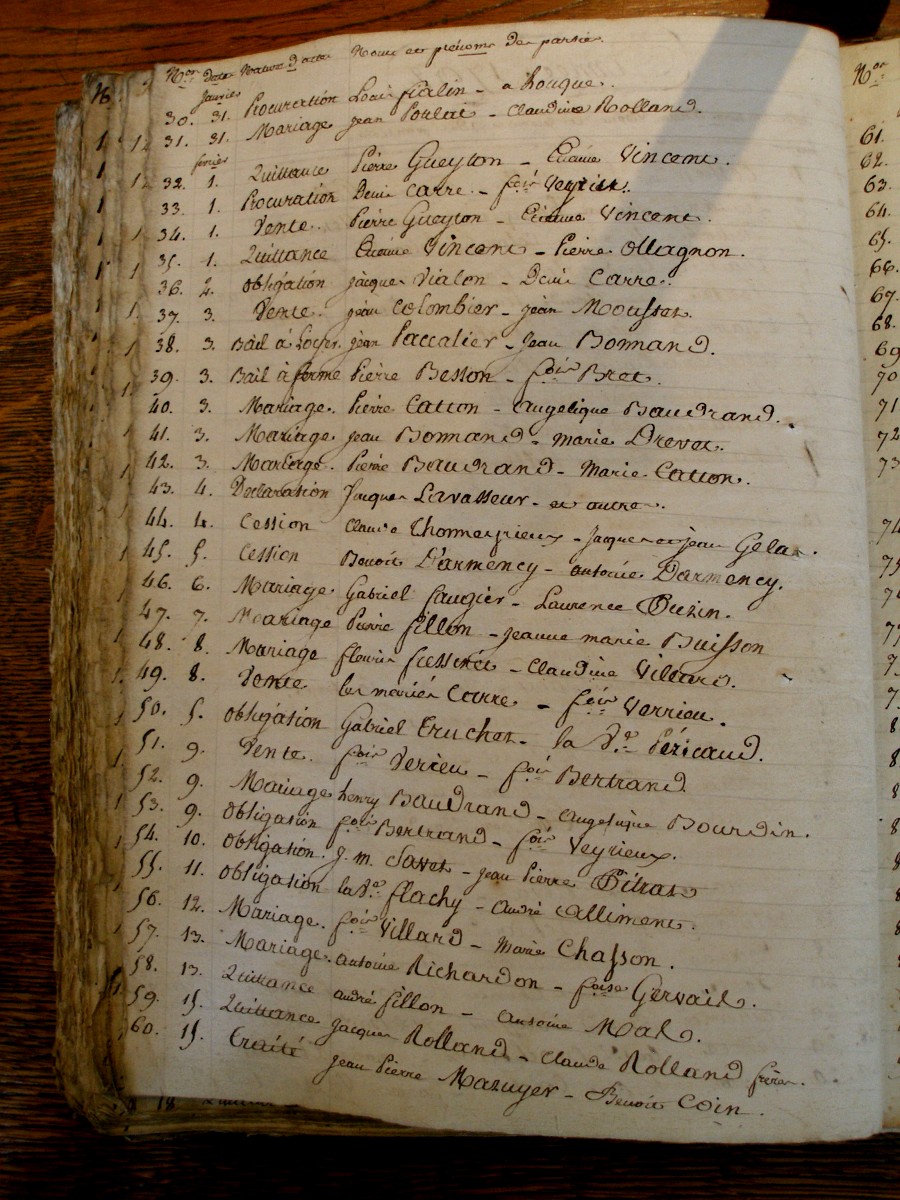 Nos. Date Nature d'acte Noms et prénoms des parties.
Janvier
30. 31. Procuration Louis fialin - a houque.
31. 31. Mariage jean Poulat - Claudine Rolland.
fevrier
32. 1. Quittance Pierre Gueyton - Etienne Vincent.
33. 1. Procuration Denis Carre - fçois Veyrieux.
34. 1. Vente. Pierre Gueyton - Etienne Vincent.
35. 1. Quittance Etienne Vincent - Pierre Ollagnon.
36. 2. Obligation jacques Vialon - Denis Carre.
37. 3. Vente. jean Colombier - jean Mousset.
38. 3. Bail à Loyer jean Paccalier - Jean Bonnand.
39. 3. Bail à ferme Pierre Besson - fçois Bret.
40. 3. Mariage. Pierre Catton - angelique Baudrand.
41. 3. Mariage. jean Bonnand - marie Drevet.
42. 3. Mariage. Pierre Baudrand - Marie Catton.
43. 4. Declaration Jacques Lavasseur - et autres.
44. 4. Cession Claude Thomeyrieux - Jacques et jean
45. 5. Cession Benoit Darmency - antoine Darmency.
46. 6. Mariage. Gabriel Faugier - Laurence Ouzin.
47. 7. Mariage Pierre fillon - jeanne marie Buisson
48. 8. Mariage fleurie - Claudine Villard.
49. 8. Vente les mariés Carre - fçois Verrieu.
50. 5. Obligation Gabriel Cruchet - la Ve. Péricaud.
51. 9. Vente. fçois Verieu - fçois Bertrand
52. 9. Mariage henry Baudrand - angelique Bourdin.
53. 9. Obligation fçois Bertrand - fçois Veyrieux.
54. 10. Obligation. J. m. Savet - jean Pierre Pitrat
55. 11. Obligation la Ve. flachy - andré Calliment.
56. 12. Mariage. fçois Villard - Marie Chasson.
57. 13. Mariage. antoine Richardon - fçoise Gervais.
58. 13. Quittance andré fillon - antoine Mat.
59. 15. Quittance Jacques Rolland - Claude Rolland frères.
60. 15. Traité jean Pierre Mazuyer - Benoit Coin.
Nos
61.
62.
63.
64.
65.
66.
67.
68.
69
70
71
72
73
74
75